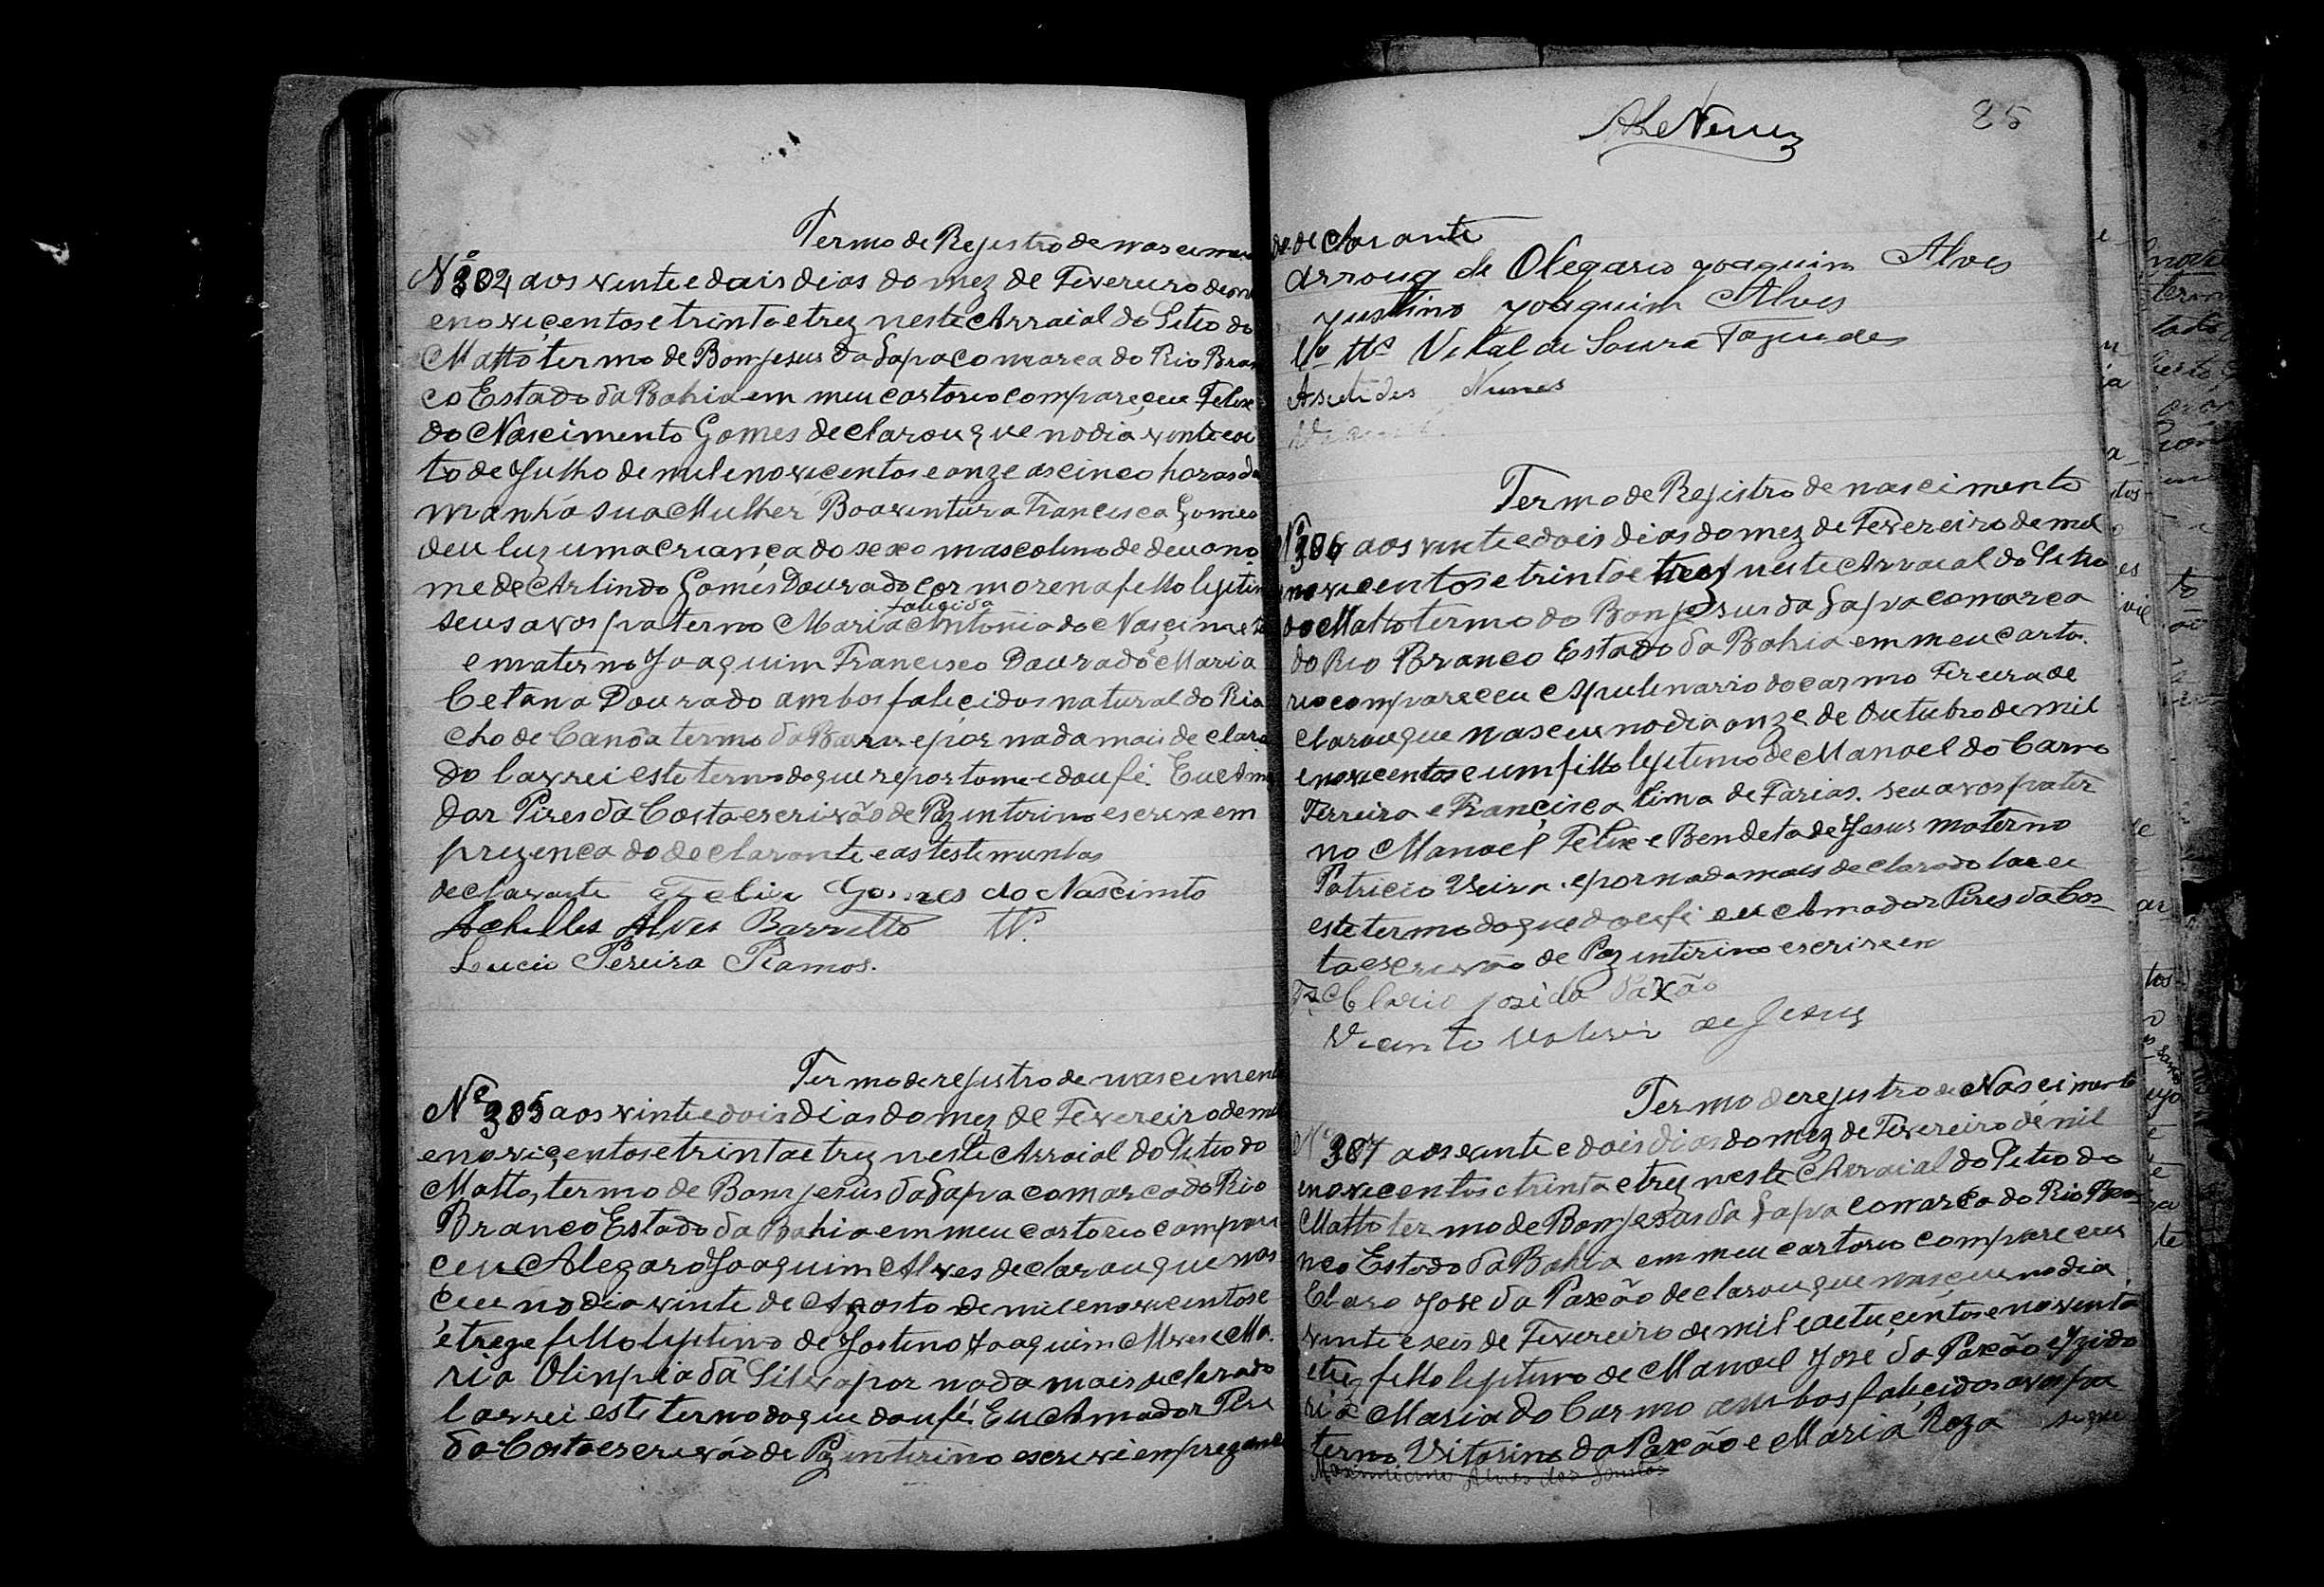 Termo de Rejistro de nascimen
Nº 304 aos vinte e dois dias do mez de Fevereiro de m
e novicentos e trinta e trez neste Arraial do Sitio do
Matto, termo de Bom jesus da Lapa comarca do Rio Bran
co Estado da Bahia em meu cartorio compareçeu Felix
do Nascimento Gomes declarou que no dia vinte e oi
to de Julho de mil e novicentos e onze as cinco horas da
manhã sua Mulher Boaventura Francisca Gomes
deu luz uma criança do sexo mascolino de deu o no
me de Arlindo Gomes Dourado cor morena filho lejitim
falicida
seus avos paterno Maria Antonia do Nascimeto
e materno Joaquim Francisco Dourado e Maria
Celana Dourado ambos faliçidos natural do Ria
cho de Canôa termo da Barra e por nada mais declara
do lavrei este termo do que reporto me e dou fé. Eu Ama
dor Pires da Costa escrivão de Paz interino escreve em
prezenca do declarante e as testemunhas
declarante Felix Gomes do Nascimto
Achilles Alves Barretto Tta.
Lucio Pereira Ramos.
Termo de rejistro de nascimen
Nº 305 aos vinte e dois dias do mez de Fevereiro de mil
e noviçentos e trinta e trez neste Arraial do Sitio do
Matto, termo de Bom jesus da Lapa comarca do Rio
Branco Estado da Bahia em meu cartorio compare
ceu Alegaro Joaquim Alves declarou que nas
ceu no dia vinte de Agosto de mil e novicentos e
e treze filho lejitimo de Jostino Joaquim Alves e Ma
ria Olimpia da Silva por nada mais declarado
lavrei este termo do que dou fé. Eu Amador Pire
da Costa escrivão de Paz interino escrevi em prezenc
85
de declarante
Arroug de Olegario Joaquim Alves
Justino Joaquim Alves
Vital de Souza Fagundes
Nunes
Termo de Rejistro de nascimento
Nº 306 aos vinte e dois dias do mez de Fevereiro de mil
novicentos e trinta e trez neste Arraial do Sitio
do Matto termo do Bom Jesus da Lapa comarca
do Rio Branco Estado da Bahia em meu carto
rio compareceu Apulinario do carmo Fereira de
clarou que nasceu no dia onze de Outubro de mil
e novicentos e um filho lejitimo de Manoel do Carmo
Ferreira e Françisca lima de Farias. seu avos pater
no Manoel Felix e Bendeta de Jesus materno
Patricio Vieira. e por nada mais declarado lavrei
este termo do que dou fé eu Amador Pires da Cos
ta escrivão de Paz interino escrivi em
Ta Clario José da Paixão
Vicente de Jesus
Termo de rejistro de Nascimento
Nº 307 aos vinte e dois dias do mez de Fevereiro de mil
e novicentos e trinta e trez neste Arraial do Sitio do
Matto termo de Bom jesus da Lapa comarca do Rio Bra
nco Estado da Bahia em meu cartorio compareceu
Claro Jose da Paxão declarou que nasçeu no dia
vinte e seis de Fevereiro de mil e oetuçentos e noventa
e trez filho lejitimo de Manoel Jose da Paxão e Izido
ria Maria do Carmo ambos faliçidos avos pa
terno Vitorino da Paxão e Maria Roza segue
Maximiano Alves dos Santos